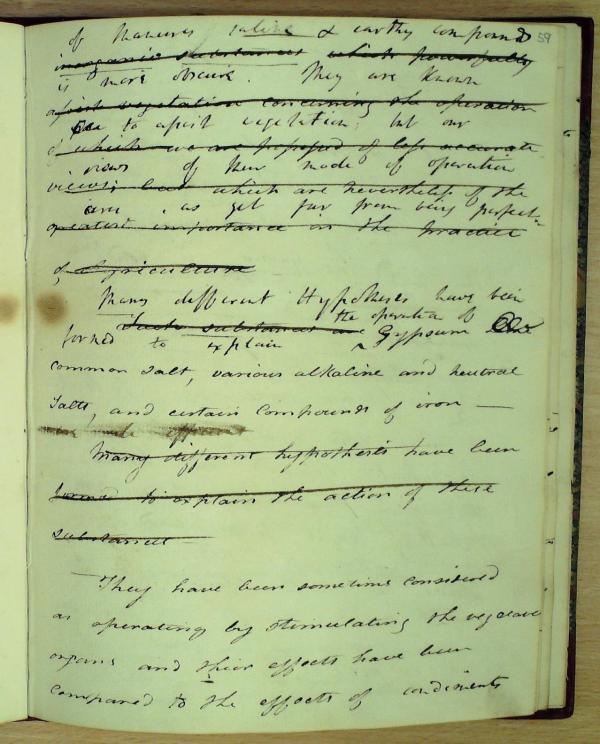 59
of Manures saline & earthy compounds
inorganic substances which powerfully
is more obscure. They are known
assist vegetation concerning the operation
to assist vegetation; but our
of which we are possessed of less accurate
views of their mode of operation
views; but which are nevertheless of the
are as yet far from being perfect
greatest importance in the practice
of Agriculture
Many different Hypotheses have been
Such substances are the operation of
formed to explain ^ Gypsum
common salt, various alkaline and neutral
salts, and certain compounds of iron —
Many different hypothesis have been
formed to explain the action of these
substances —
They have been sometimes considered
as operating by stimulating the vegetable
organs and thier effects have been
compared to the effects of condiments